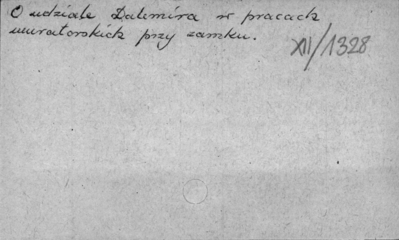 O udziale Dalimira w pracach
muratorskich przy zamku.
XII/1328